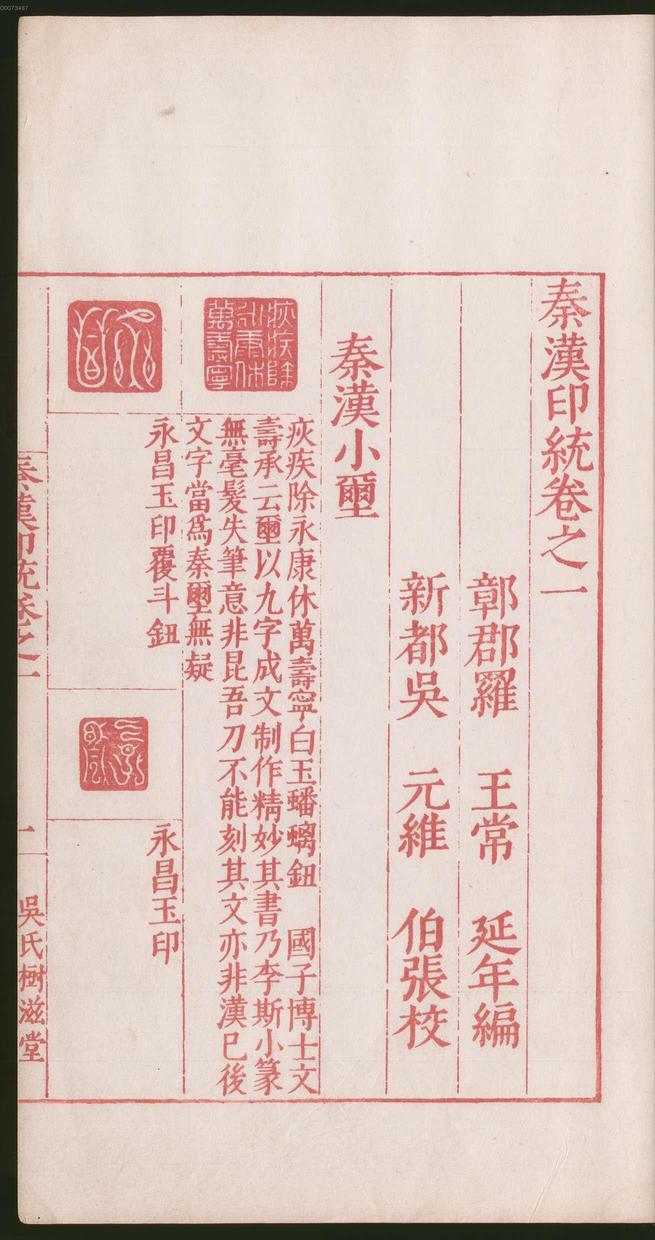 秦漢印統卷之一
鄣郡羅　王常　延年編
新都吳　元維　伯張校
秦漢小璽
疢疾除永康休萬壽寧
疢疾除永康休萬壽寧白玉蟠螭鈕　國子博士文
壽承云璽以九字成文制作精妙其書乃李斯小篆
無毫髮失筆意非昆吾刀不能刻其文亦非漢已後
文字當爲秦璽無疑
永昌
永昌玉印覆斗鈕
永昌
永昌玉印
秦漢印統卷之一
一
吳氏樹滋堂
00073467